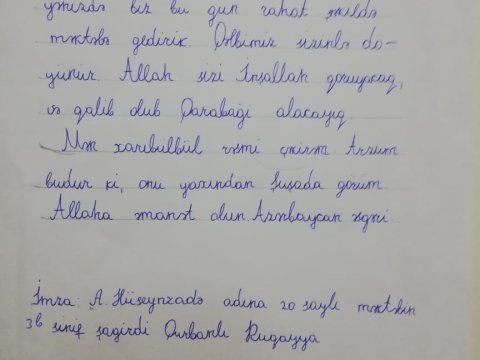 yənizdə biz bu gün rahat şəkildə
məktəbə gedirik. Qəlbimiz sizinlə dö-
yünür. Allah sizi İnşallah qoruyacaq,
və qalib olub Qarabağı alacayıq
Mən xarıbülbül rəsmi çəkirəm Arzum
budur ki, onu yaxından Şuşada görüm.
Allaha əmanət olun. Azərbaycan əsgəri.
İmza: A. Hüseynzadə adına 20 saylı məktəbin
3b sinif şagirdi Qurbanlı Ruqəyya